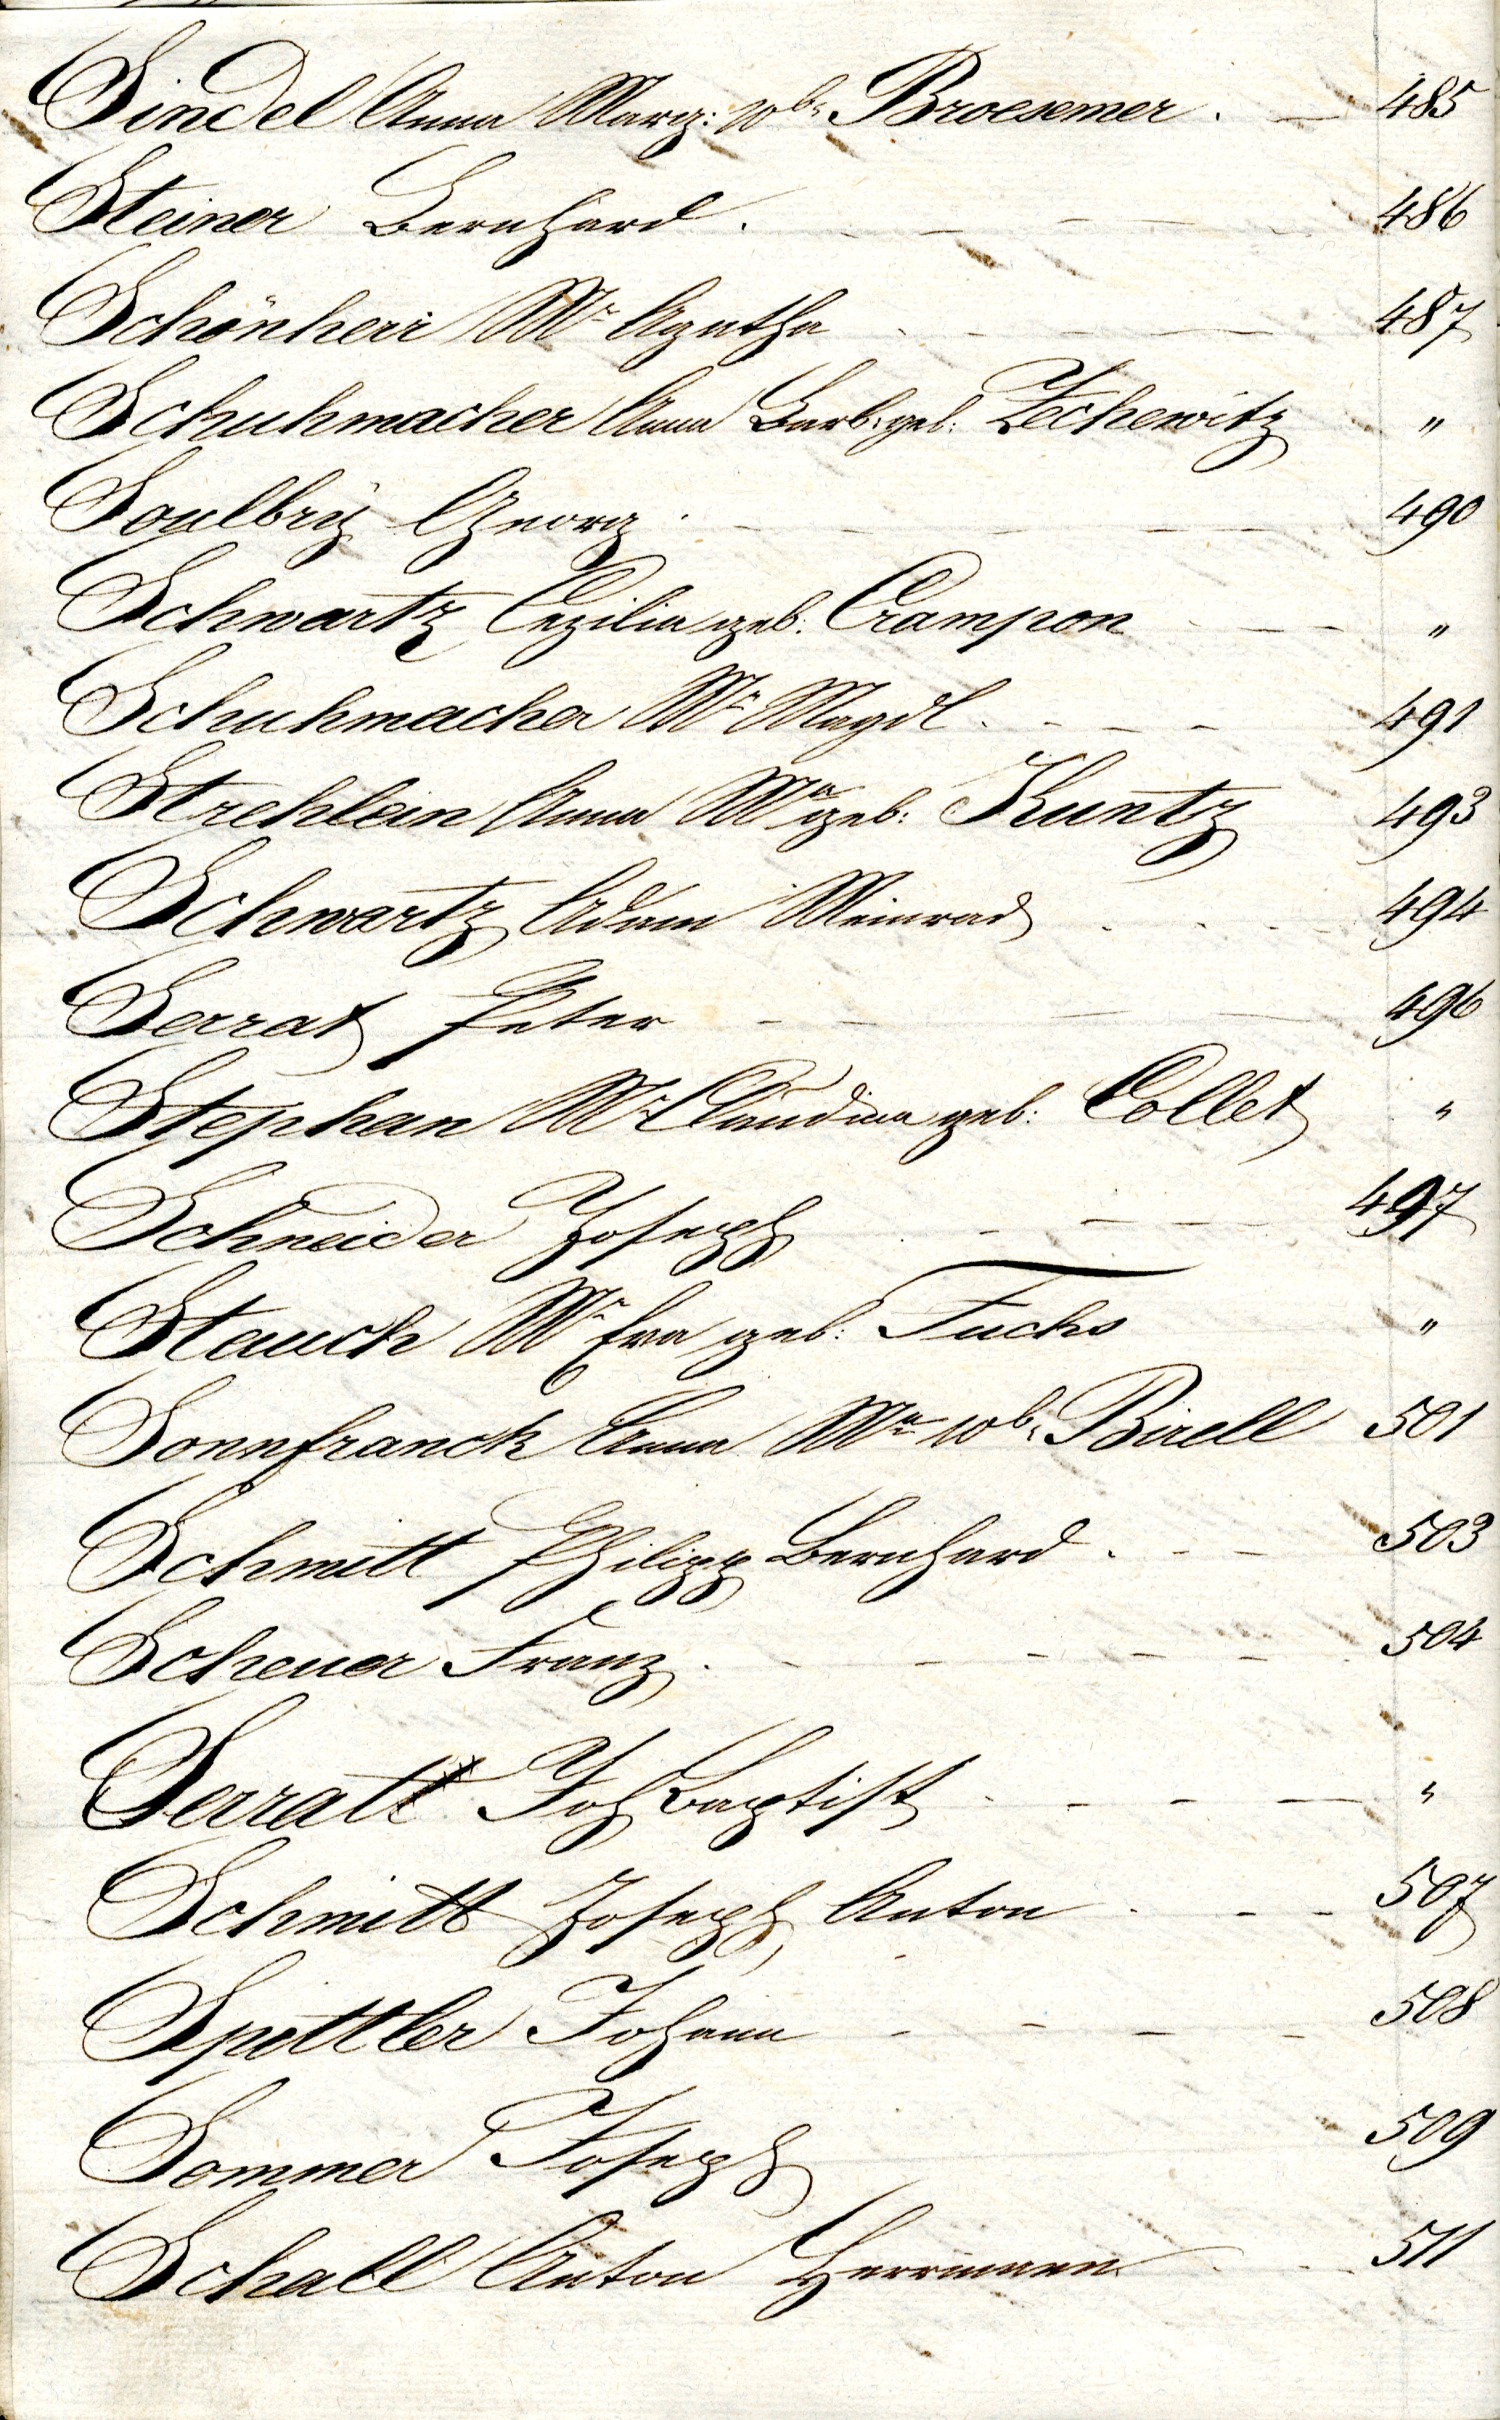 Sindel Anna Marg: wb. Broesemer . — 485
Steiner Bernhard . - - - - 486
Schönherr Mr Agatha - - - - 487
Schuhmacher Anna Barb. geb: Zechewitz "
Georg . - - - - 490
Schwartz Cezilia geb: Crampon - - - "
Schuhmacher Mr Magdl . - - - 491
Strehlein Anna Ma geb: Kuntz 493
Schwartz Adam Meinrad . . . . 494
Serrat Peter - - - - 496
Stephan Mr Claudina geb: Collet "
Schneider Joseph . - - - 497
Stauch Mr Eva geb: Fuchs "
Sonnfranck Anna Ma wb. Birell 501
Schmitt Philipp Bernhard . - - 503
Scheuer Franz . - - - - - 504
Serratt Joh Baptist . - - - — "
Schmitt Joseph Anton . - - 507
Spittler Johann - - - - 508
Sommer Joseph 509
Schall Anton Herrmann . . 511